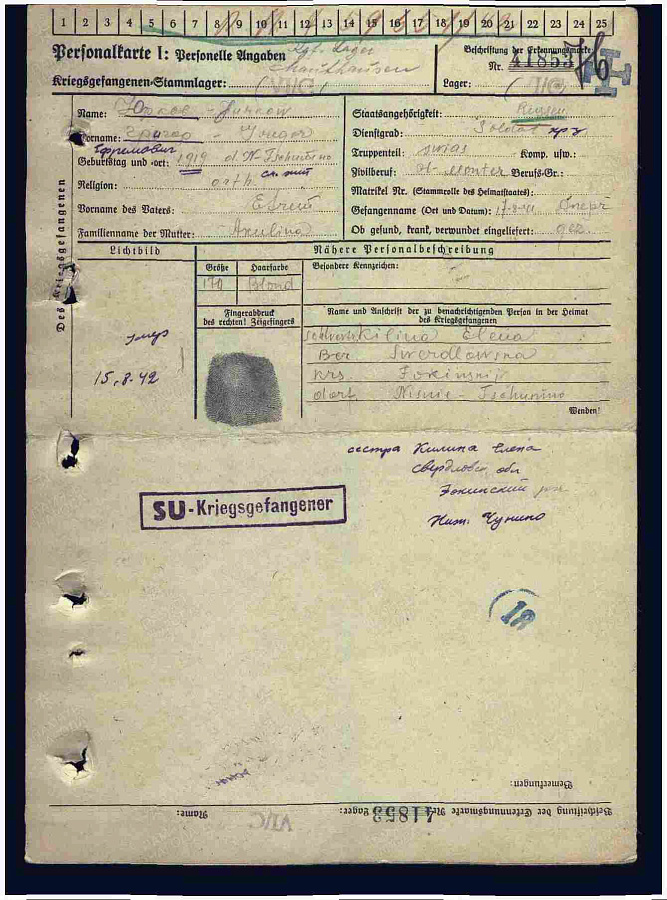 1 2 3 4 5 6 7 8 9 10 11 12 13 14 15 16 17 18 19 20 21 22 23 24 25
Personalkarte I: Personelle Angaben
Kgf. Lager
Mauthausen
Beschriftung der Erkennungsmarke
Nr. 41853
Kriegsgefangenen-Stammlager: (VII C)
Lager: (VII C)
Des Kriegsgefangenen
Name: Юрков - Jurkow
Vorname: - Jregor
Ефремович
Geburtstag und -ort: 1919 d. N-Tschunino
Religion: orth.
Vorname des Vaters: Efrem
Familienname der Mutter: Akulina
Staatsangehörigkeit: Russe
Dienstgrad: Soldat
Truppenteil: Komp. usw.:
Zivilberuf: Monter Berufs-Gr.:
Matrikel Nr. (Stammrolle des Heimatstaates):
Gefangennahme (Ort und Datum): Dnepr
Ob gesund, krank, verwundet eingeliefert: ges.
Lichtbild
Nähere Personalbeschreibung
Größe
Haarfarbe
Besondere Kennzeichen:
170
Blond
Fingerabdruck
des rechten! Zeigefingers
Name und Anschrift der zu benachrichtigenden Person in der Heimat
des Kriegsgefangenen
Kilina Elena
Swerdlowska
Krs. Fokinskij
dorf. Nisnie-Tschunino
Wenden!
умер
15.8.42
сестра Килина Елена
свердловс. обл
Фокинский
Ниж. Чунино
SU-Kriegsgefangener
Bemerkungen:
Beschriftung der Erkennungsmarke Nr. 41853 Lager: VII C
Name: